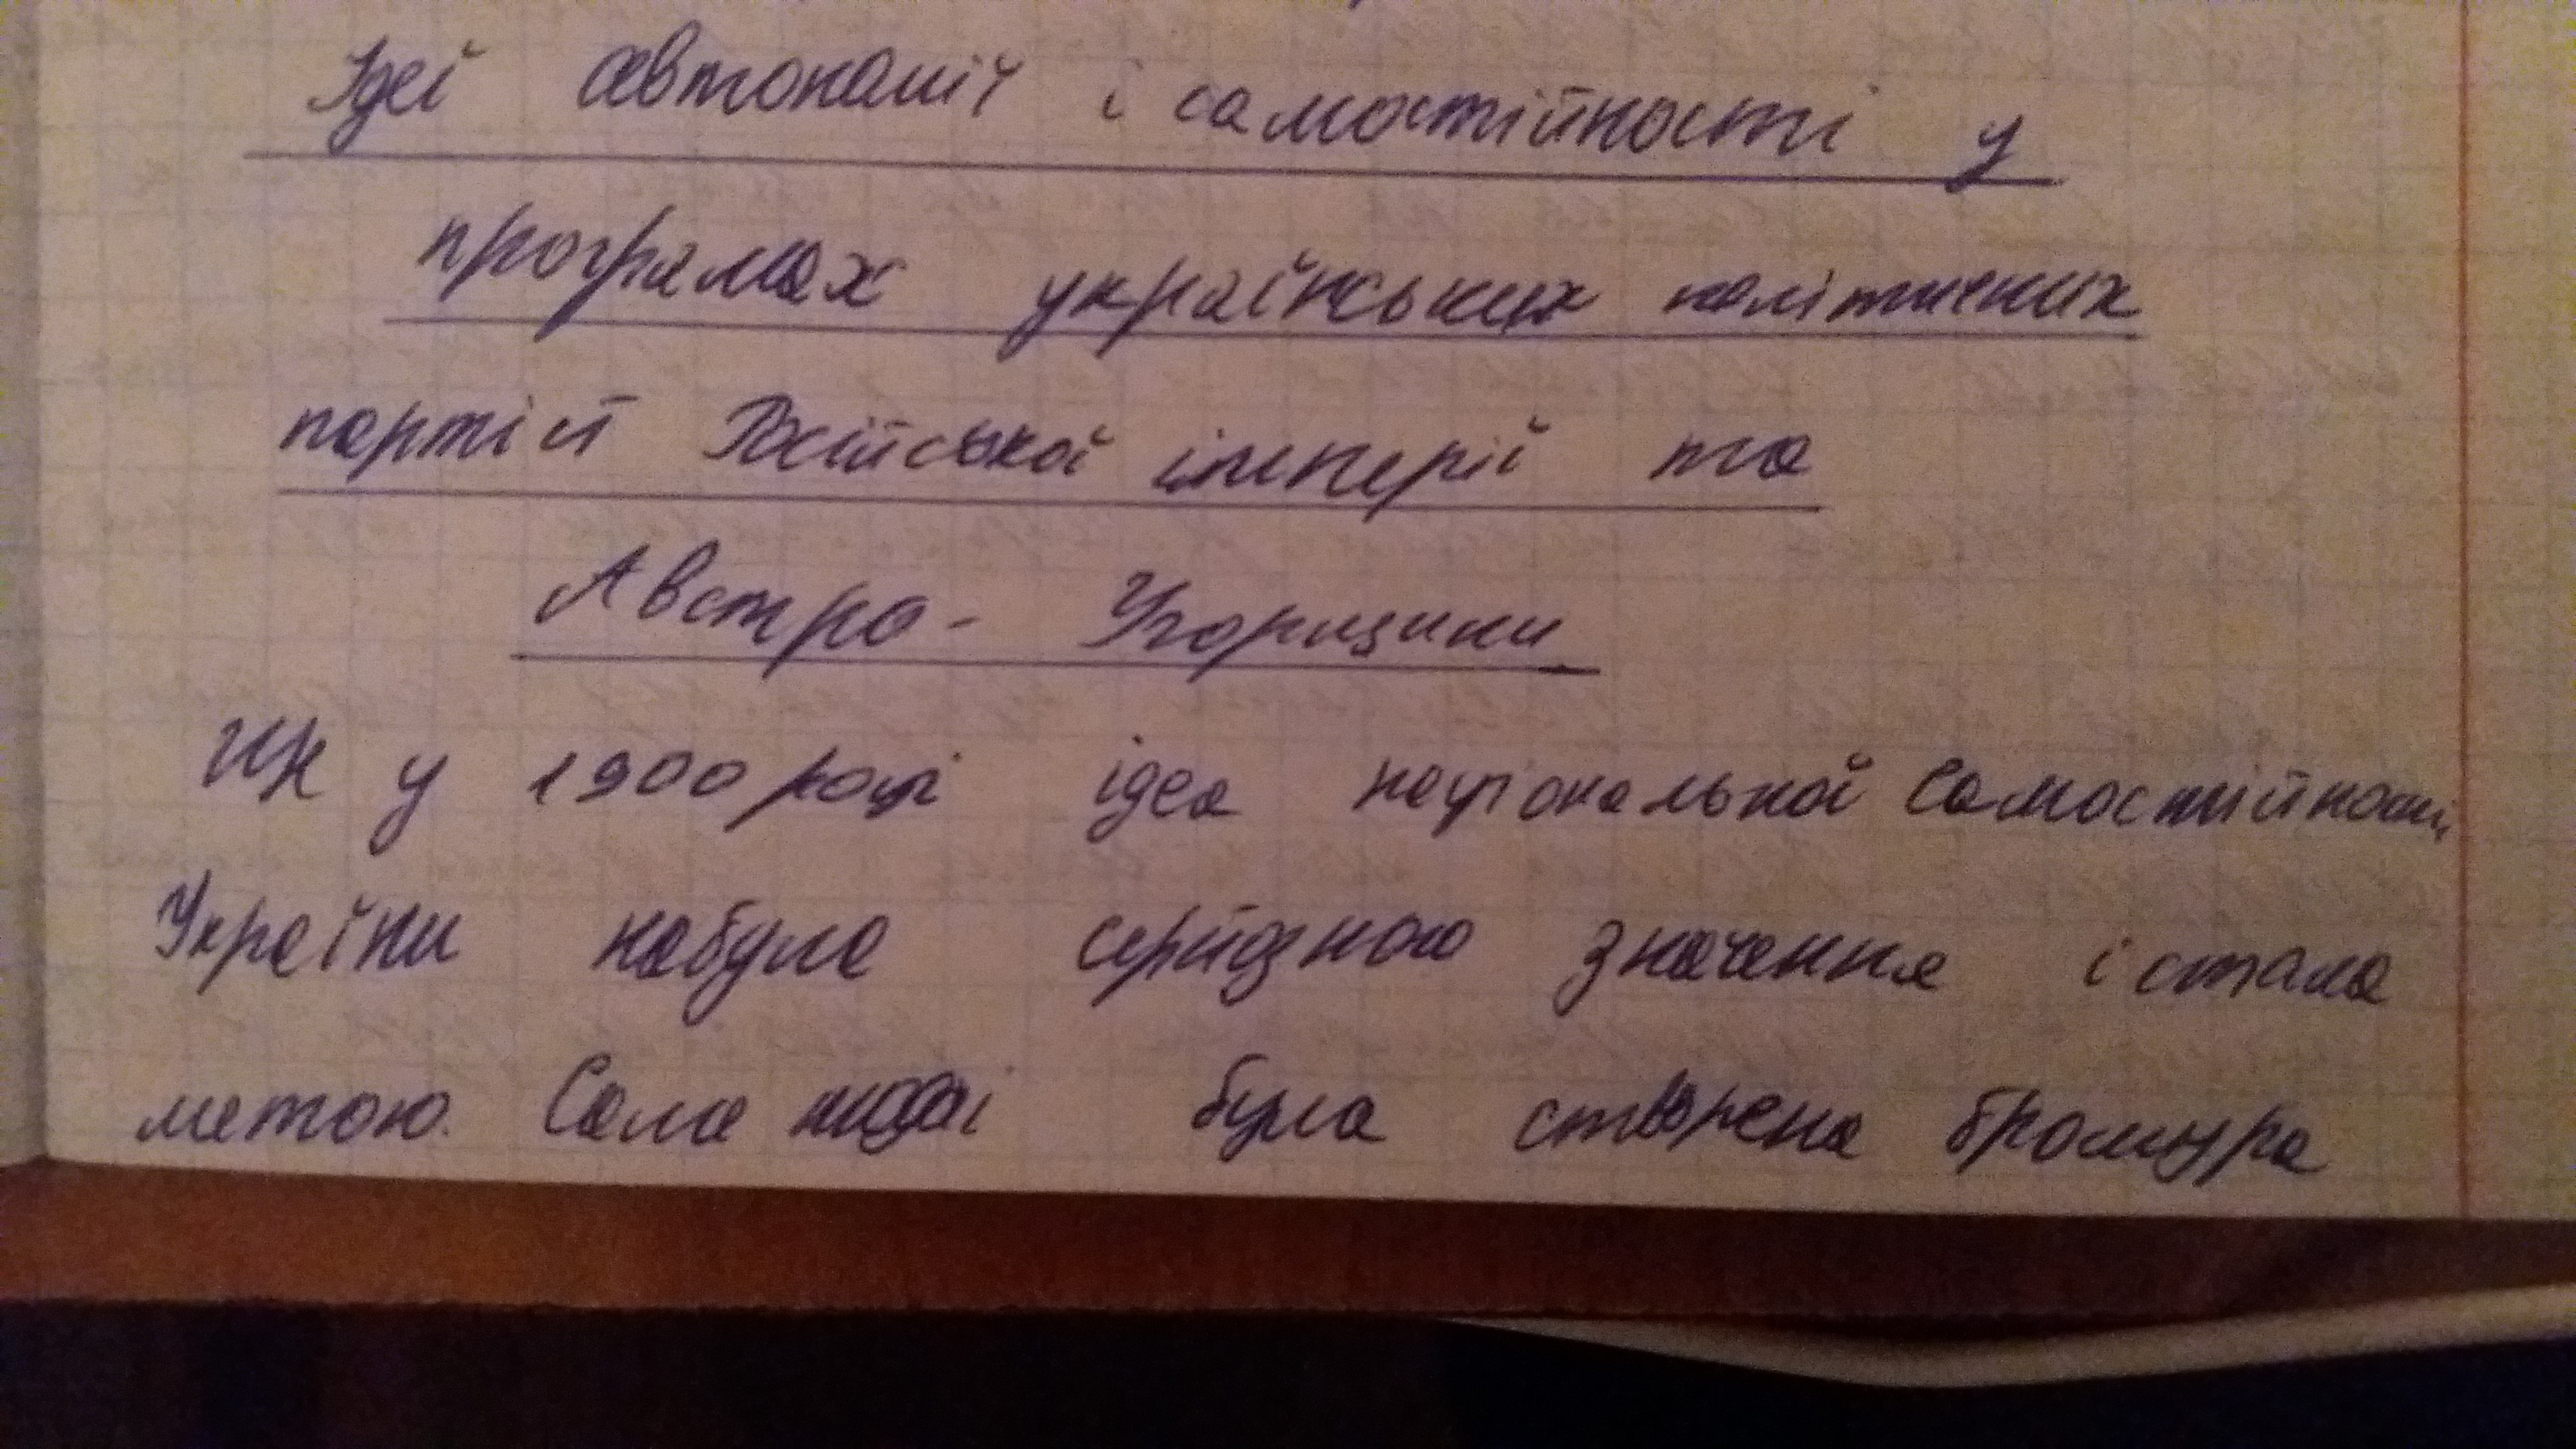 Ідеї автономії і самостійності у
програмах українських політичних
партій Російської імперії та
Австро- Угорщини
у 1900 році ідеа національної самостійності
України набула серйозного значення і стала
метою. Саме тоді була створена брошура